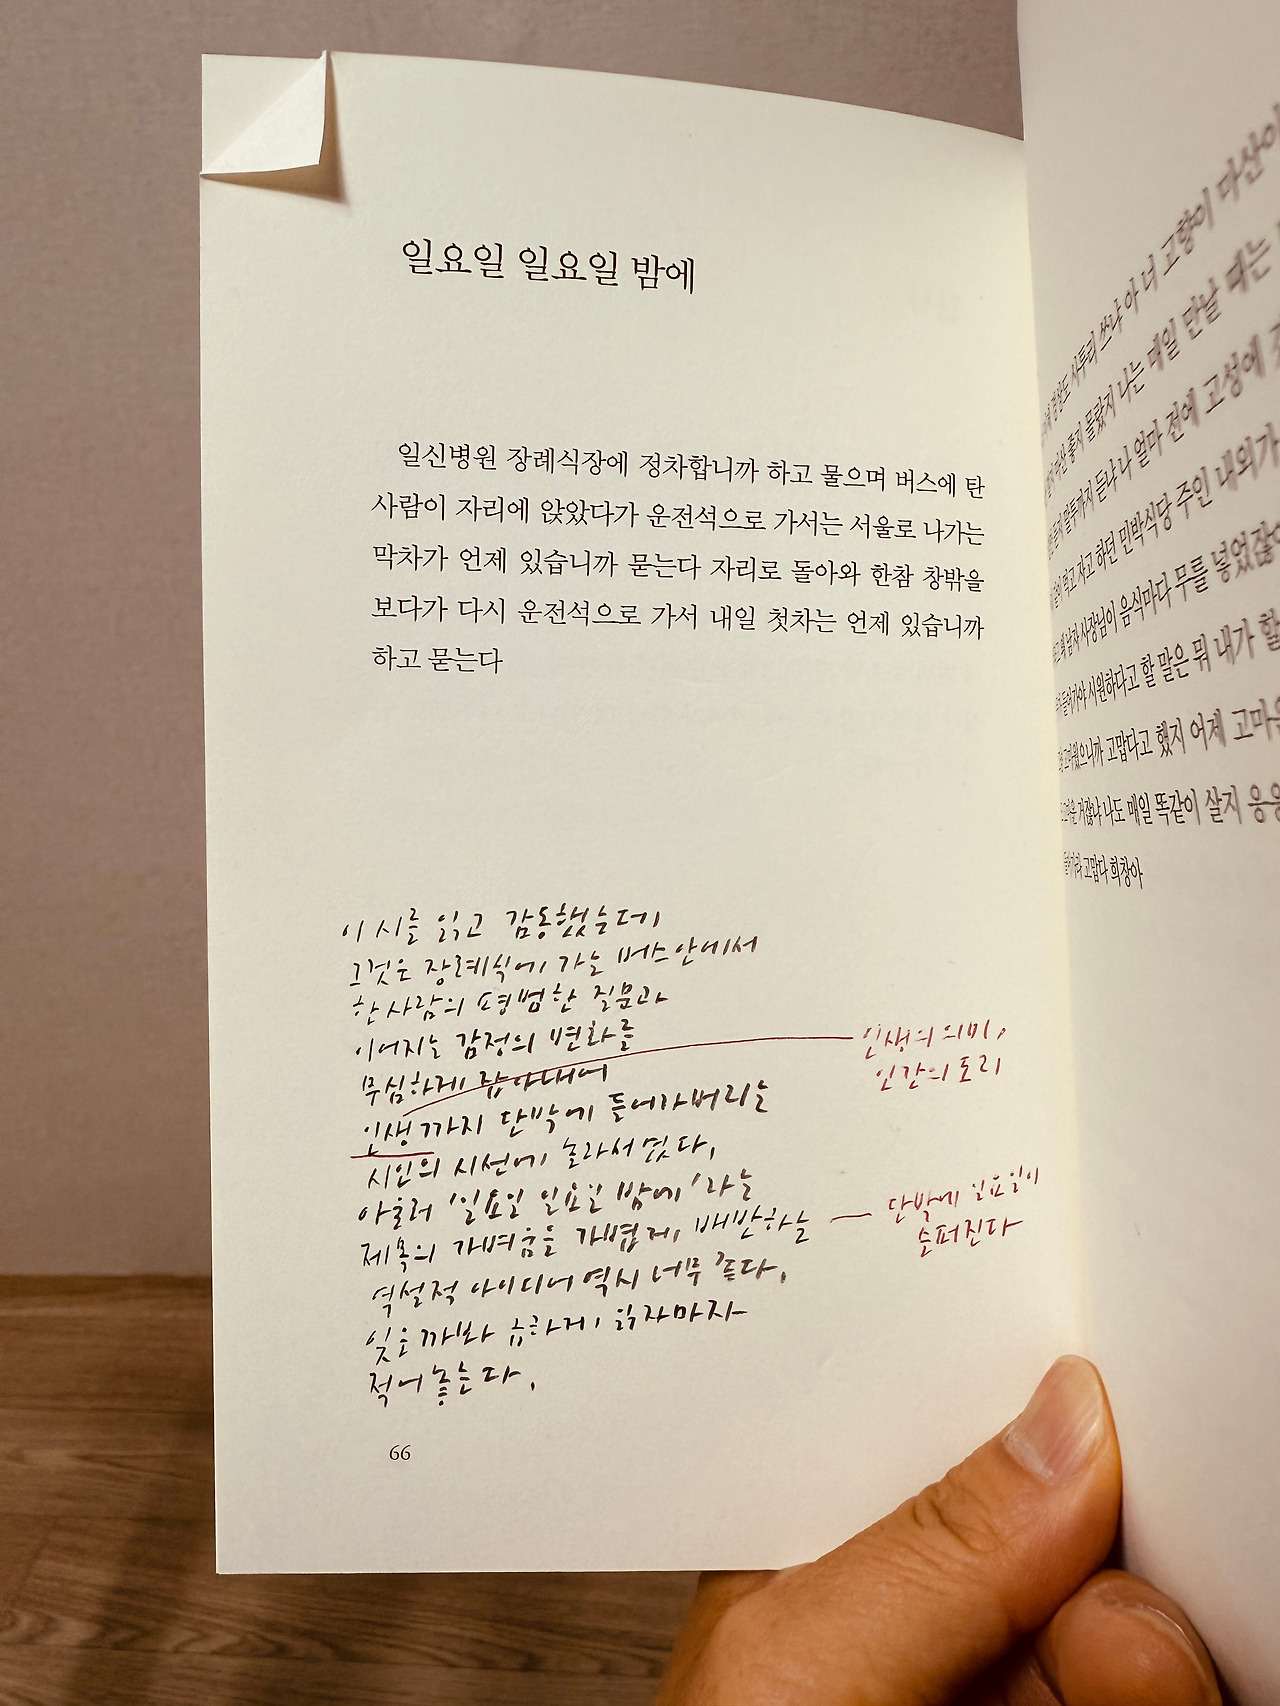 일요일 일요일 밤에
일신병원 장례식장에 정차합니까 하고 물으며 버스에 탄
사람이 자리에 앉았다가 운전석으로 가서는 서울로 나가는
막차가 언제 있습니까 묻는다 자리로 돌아와 한참 창밖을
보다가 다시 운전석으로 가서 내일 첫차는 언제 있습니까
하고 묻는다
이 시를 읽고 감동했는데
그것은 장례식에 가는 버스 안에서
한 사람의 평범한 질문과
이어지는 감정의 변화를
무심하게 잡아내어
인생까지 단박에 들어가버리는
시인의 시선에 놀라서였다.
아울러 '일요일 일요일 밤에'라는
제목의 가벼움을 가볍게, 배반하는
역설적 아이디어 역시 너무 좋다.
잊을까봐 급하게 읽자마자
적어놓는다.
인생의 의미,
인간의 도리
단박에 일요일이
슬퍼진다
66
사투리 쓰냐 아 너 고향이 마산이
좋지 몰랐지 나는 매일 만날 때는
말투까지 듣냐 나 얼마 전에 고성에
먹고 자고 하던 민박식당 주인 내외가
남자 사장님이 음식마다 무를 넣었잖아
들어가야 시원하다고 할 말은 뭐 내가 할
고마웠으니까 고맙다고 했지 어제
거잖냐 나도 매일 똑같이 살지 응응
고맙다 희창아